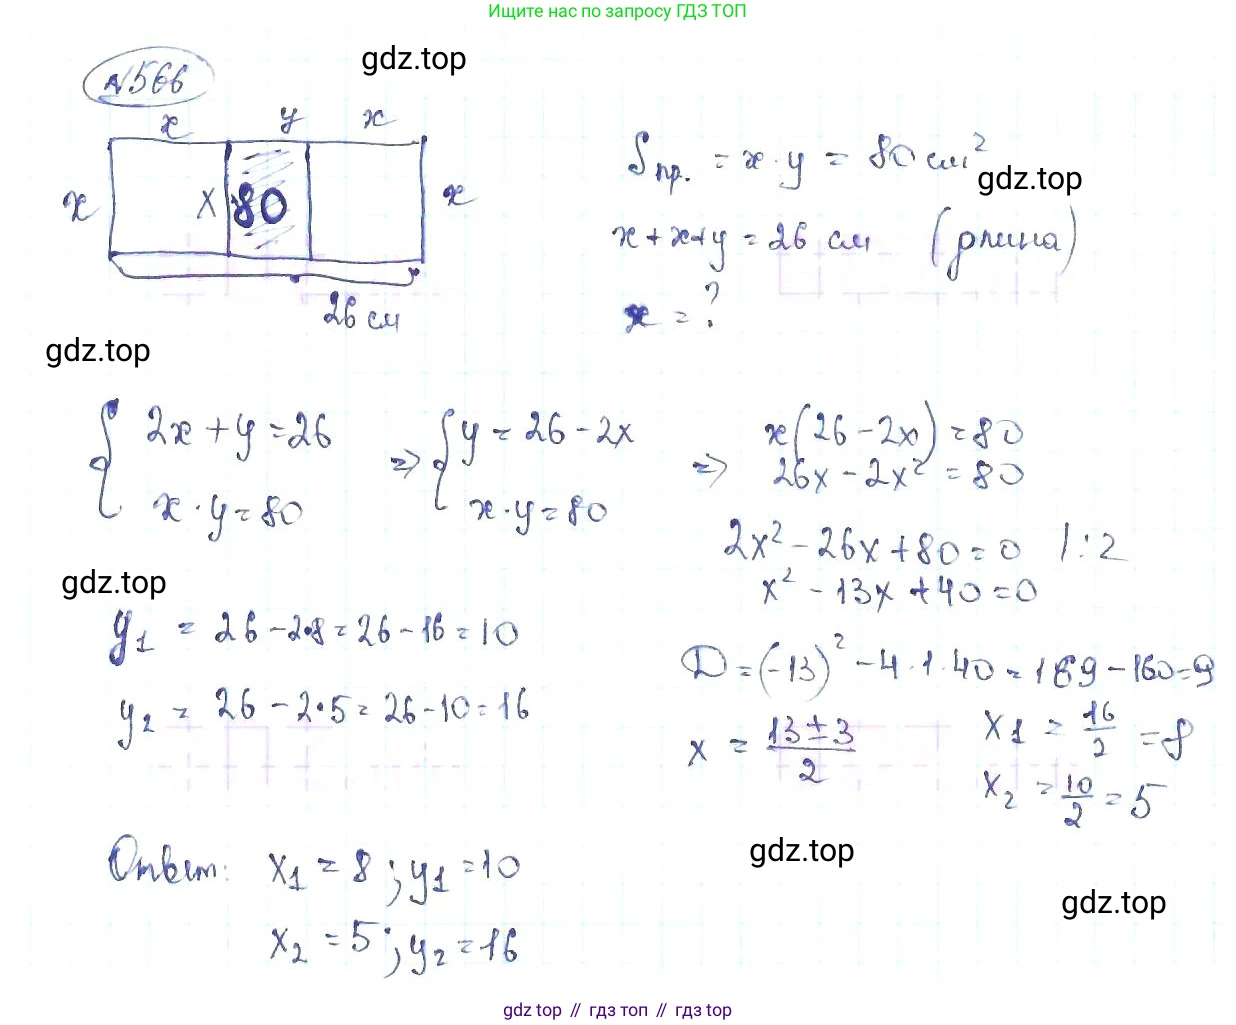 Ищите нас по запросу ГДЗ ТОП
gdz.top
№566
x y x
x x 80 x
26 см
Sпр. = x · y = 80 см²
gdz.top
x + x + y = 26 см (длина)
x = ?
gdz.top
{ 2x + y = 26
x · y = 80
=> { y = 26 - 2x
x · y = 80
=> x(26 - 2x) = 80
26x - 2x² = 80
2x² - 26x + 80 = 0 | : 2
x² - 13x + 40 = 0
gdz.top
y₁ = 26 - 2·8 = 26 - 16 = 10
y₂ = 26 - 2·5 = 26 - 10 = 16
D = (-13)² - 4·1·40 = 169 - 160 = 9
x = (13 ± 3)/2
x₁ = 16/2 = 8
x₂ = 10/2 = 5
gdz.top
Ответ: x₁ = 8; y₁ = 10
x₂ = 5; y₂ = 16
gdz.top
gdz top // гдз топ // gdz top